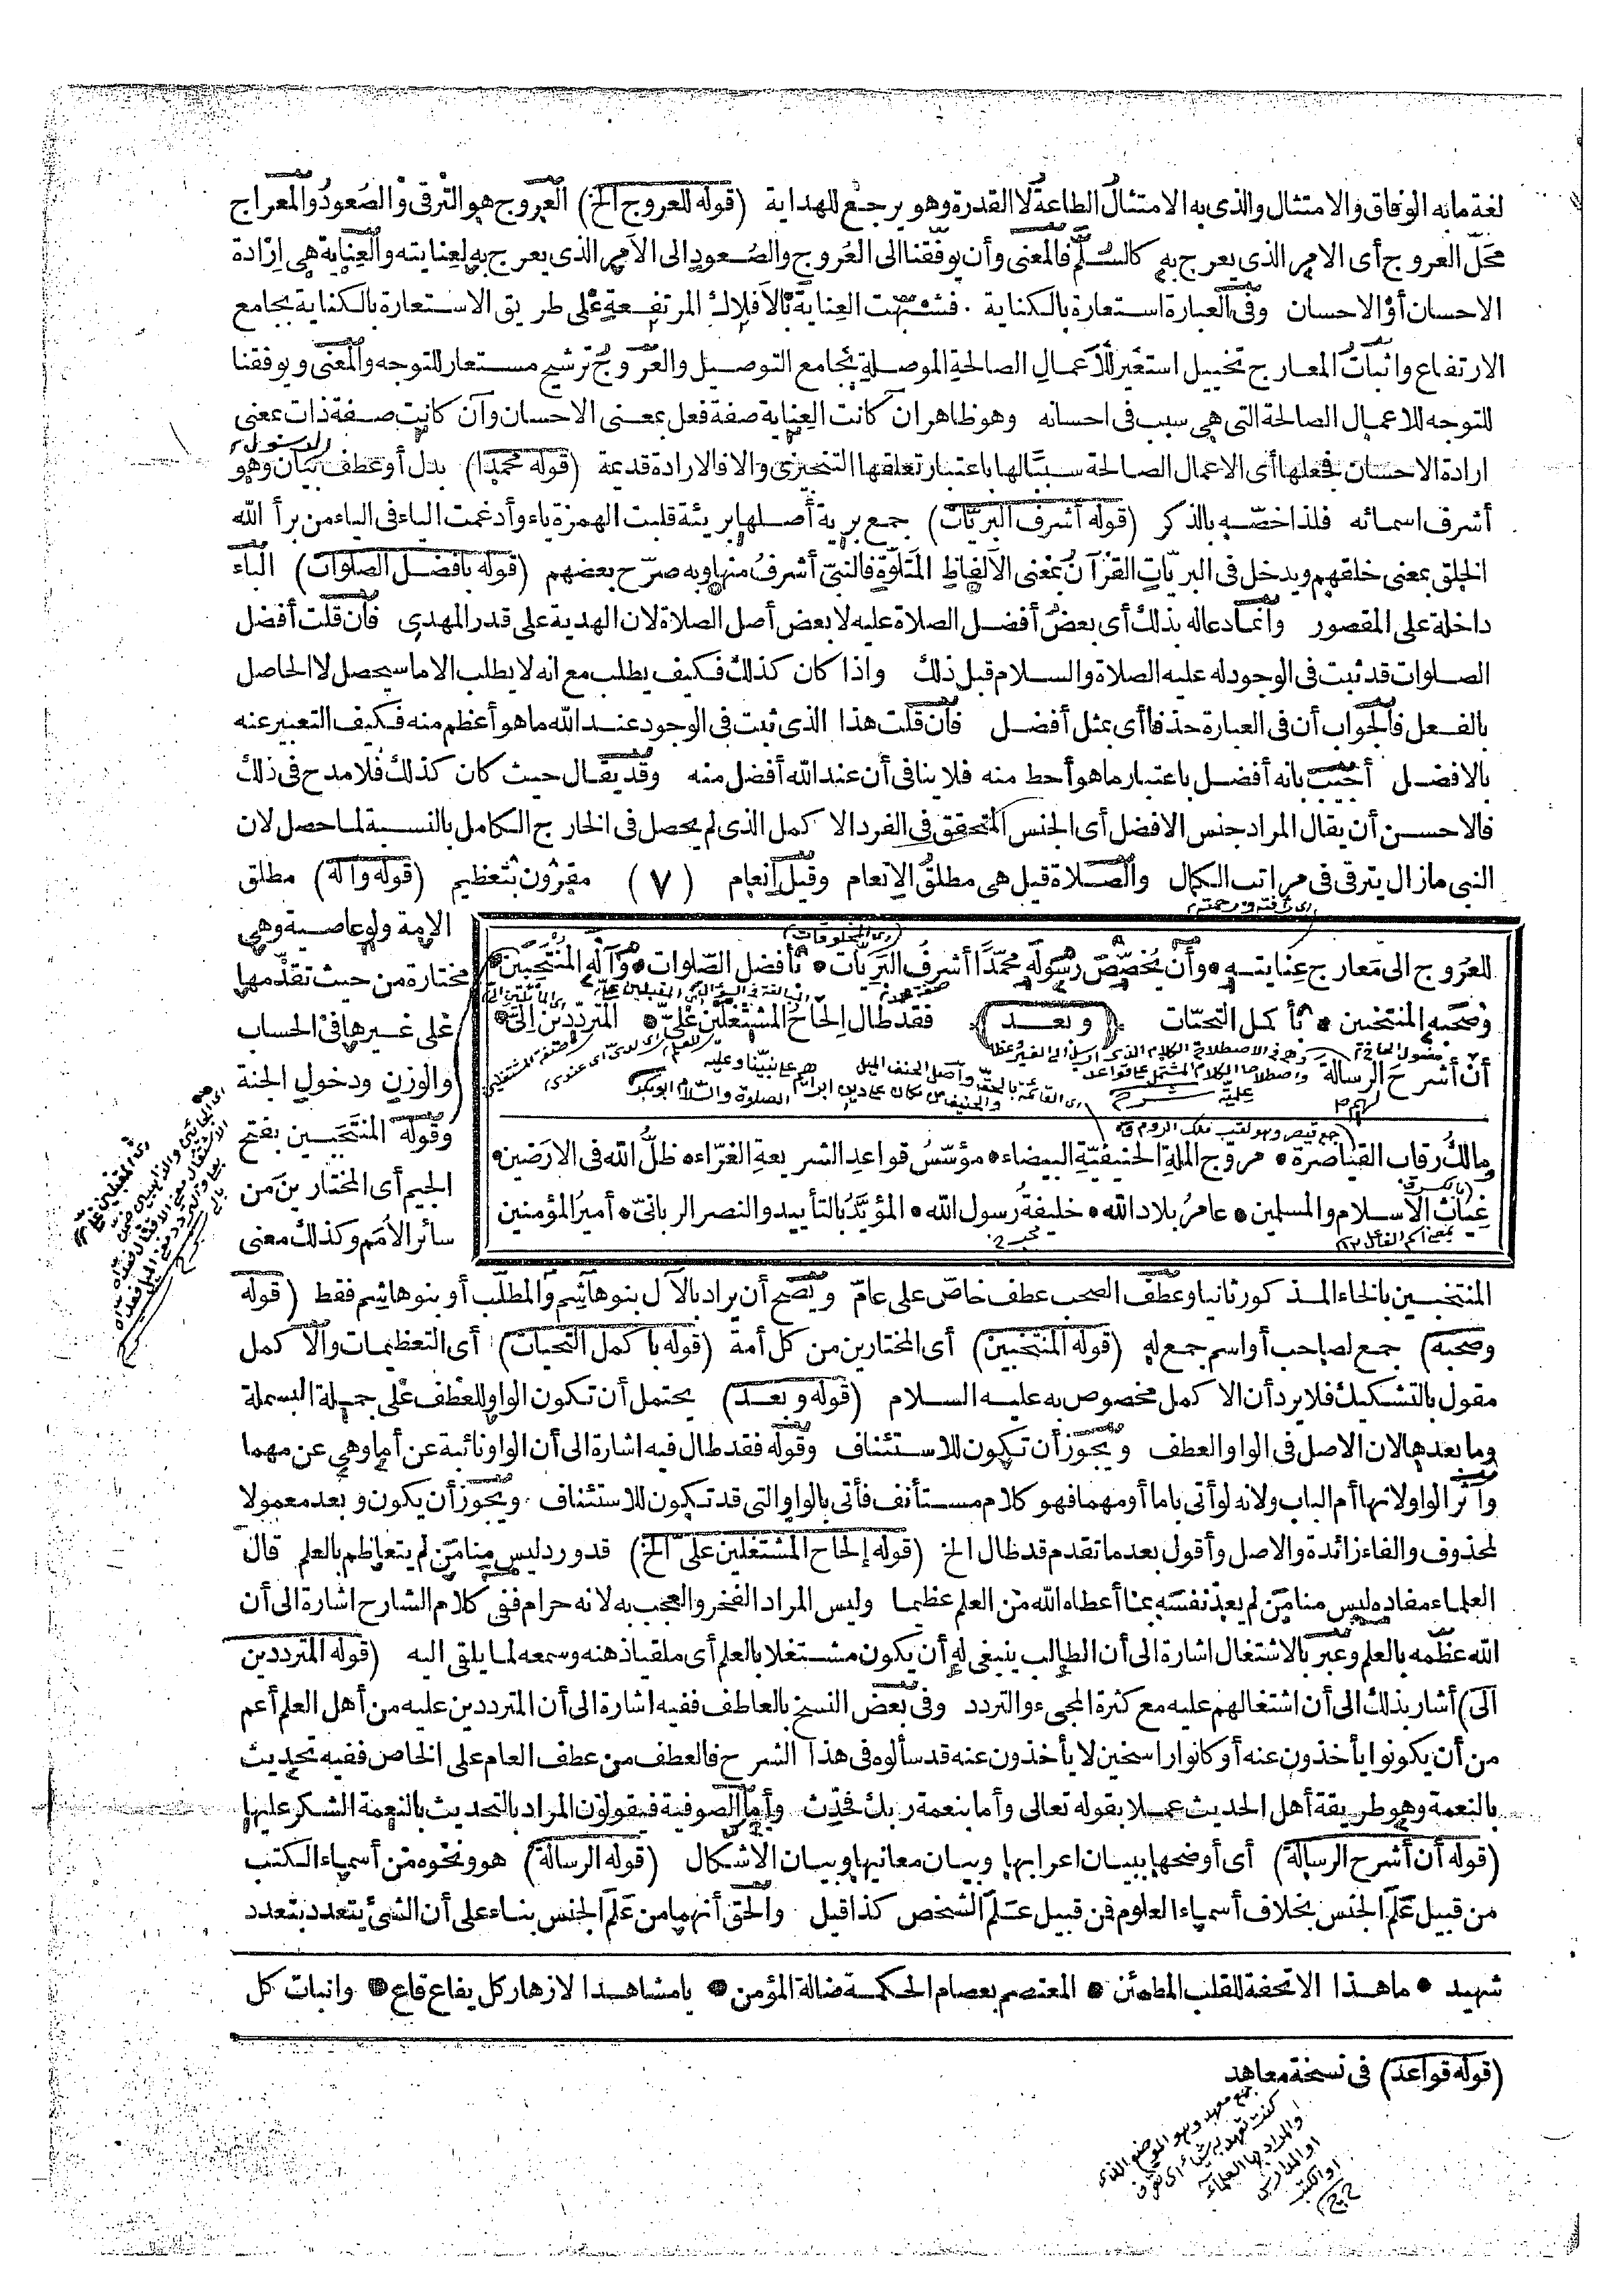 لغة مانه الوفاق والامتثال والذى به الامتثال الطاعة لا القدرة وهو يرجع للهداية (قوله للعروج الخ) العروج هو الترقى والصعود والمعراج
محل العروج أى الامر الذى يعرج به كالسلم فالمعنى وأن يوفقنا الى العروج والصعود الى الامر الذى يعرج به لعنايته والعناية هى ارادة
الاحسان أو الاحسان وفى العبارة استعارة بالكناية . فشبهت العناية بالافلاك المرتفعة على طريق الاستعارة بالكناية بجامع
الارتفاع واثبات المعارج تخييل استعير للاعمال الصالحة الموصلة بجامع التوصيل والعروج ترشيح مستعار للتوجه والمعنى ويوفقنا
للتوجه للاعمال الصالحة التى هى سبب فى احسانه وهو ظاهر ان كانت العناية صفة فعل بمعنى الاحسان وان كانت صفة ذات بمعنى
ارادة الاحسان فجعلها أى الاعمال الصالحة سببا لها باعتبار تعلقها التنجيزى والا فالارادة قديمة (قوله محمدا) بدل أو عطف بيان وهو
أشرف اسمائه فلذا خصه بالذكر (قوله أشرف البريات) جمع برية أصلها بريئة قلبت الهمزة ياء وأدغمت الياء فى الياء من برأ الله
الخلق بمعنى خلقهم ويدخل فى البريات القرآن بمعنى الالفاظ المتلوة فالنبى أشرف منها وبه صرح بعضهم (قوله بافضل الصلوات) الباء
داخلة على المقصور وانما دعاله بذلك أى بعض أفضل الصلاة عليه لا بعض أصل الصلاة لان الهدية على قدر المهدى فان قلت أفضل
الصلوات قد ثبت فى الوجود له عليه الصلاة والسلام قبل ذلك واذا كان كذلك فكيف يطلب مع انه لا يطلب الا ما سيحصل لا الحاصل
بالفعل فالجواب أن فى العبارة حذفا أى بمثل أفضل فان قلت هذا الذى ثبت فى الوجود عند الله ما هو أعظم منه فكيف التعبير عنه
بالافضل أجيب بانه أفضل باعتبار ما هو أحط منه فلا ينافى أن عند الله أفضل منه وقد يقال حيث كان كذلك فلا مدح فى ذلك
فالاحسن أن يقال المراد جنس الافضل أى الجنس المتحقق فى الفرد الاكمل الذى لم يحصل فى الخارج الكامل بالنسبة لما حصل لان
النبى مازال يترقى فى مراتب الكمال والصلاة قيل هى مطلق الانعام وقيل انعام (٧) مقرون بتعظيم (قوله وآله) مطلق
الامة ولو عاصية وهى
مختارة من حيث تقدمها
على غيرها فى الحساب
والوزن ودخول الجنة
وقوله المنتجبين بفتح
الجيم أى المختارين من
سائر الامم وكذلك معنى
للعروج الى معارج عنايته • وأن يخصص رسوله محمدا أشرف البريات • بأفضل الصلوات • وآله المنتجبين •
وصحبه المنتخبين • بأكمل التحيات (وبعد) فقد طال الحاح المشتغلين على • المترددين الى •
أن أشرح الرسالة
ومالك رقاب القياصرة • مروج الملة الحنيفية البيضاء • مؤسس قواعد الشريعة الغراء • ظل الله فى الارضين •
غياث الاسلام والمسلمين • عامر بلاد الله • خليفة رسول الله • المؤيد بالتأييد والنصر الربانى • أمير المؤمنين
المنتخبين بالخاء المذكور ثانيا وعطف الصحب عطف خاص على عام ويصح أن يراد بالآل بنو هاشم والمطلب أو بنو هاشم فقط (قوله
وصحبه) جمع لصاحب أو اسم جمع له (قوله المنتخبين) أى المختارين من كل أمة (قوله باكمل التحيات) أى التعظيمات والاكمل
مقول بالتشكيك فلا يرد أن الاكمل مخصوص به عليه السلام (قوله وبعد) يحتمل أن تكون الواو للعطف على جملة البسملة
وما بعدها لان الاصل فى الواو العطف ويجوز أن تكون للاستئناف وقوله فقد طال فيه اشارة الى أن الواو نائبة عن أما وهى عن مهما
وآثر الواو لانها أم الباب ولانه لو أتى باما أو مهما فهو كلام مستأنف فأتى بالواو التى قد تكون للاستئناف . ويجوز أن يكون وبعد معمولا
لمحذوف والفاء زائدة والاصل وأقول بعد ما تقدم قد طال الخ (قوله إلحاح المشتغلين على الخ) قد ورد ليس منا من لم يتعاظم بالعلم قال
العلماء مفاده ليس منا من لم يعد نفسه بما أعطاه الله من العلم عظيما وليس المراد الفخر والعجب به لانه حرام ففى كلام الشارح اشارة الى أن
الله عظمه بالعلم وعبر بالاشتغال اشارة الى أن الطالب ينبغى له أن يكون مشتغلا بالعلم أى ملقيا ذهنه وسمعه لما يلقى اليه (قوله المترددين
الى) أشار بذلك الى أن اشتغالهم عليه مع كثرة المجىء والتردد وفى بعض النسخ بالعاطف ففيه اشارة الى أن المترددين عليه من أهل العلم أعم
من أن يكونوا يأخذون عنه أو كانوا راسخين لا يأخذون عنه قد سألوه فى هذا الشرح فالعطف من عطف العام على الخاص ففيه تحديث
بالنعمة وهو طريقة أهل الحديث عملا بقوله تعالى وأما بنعمة ربك فحدث وأما الصوفية فيقولون المراد بالتحديث بالنعمة الشكر عليها
(قوله أن أشرح الرسالة) أى أوضحها ببيان اعرابها وبيان معانيها وبيان الاشكال (قوله الرسالة) هو ونحوه من أسماء الكتب
من قبيل علم الجنس بخلاف أسماء العلوم فمن قبيل علم الشخص كذا قيل والحق أنهما من علم الجنس بناء على أن الشئ يتعدد بتعدد
شهيد • ما هذا الا تحفة للقلب المطمئن • المعتصم بعصام الحكمة ضالة المؤمن • يا مشاهدا لازهار كل يفاع قاع • وانبات كل
(قوله قواعد) فى نسخة معاهد
جمع معهد وهو الموضع الذى
كنت تعهد به شيئا
والمراد بها العلماء
او المدارس
او الكتب